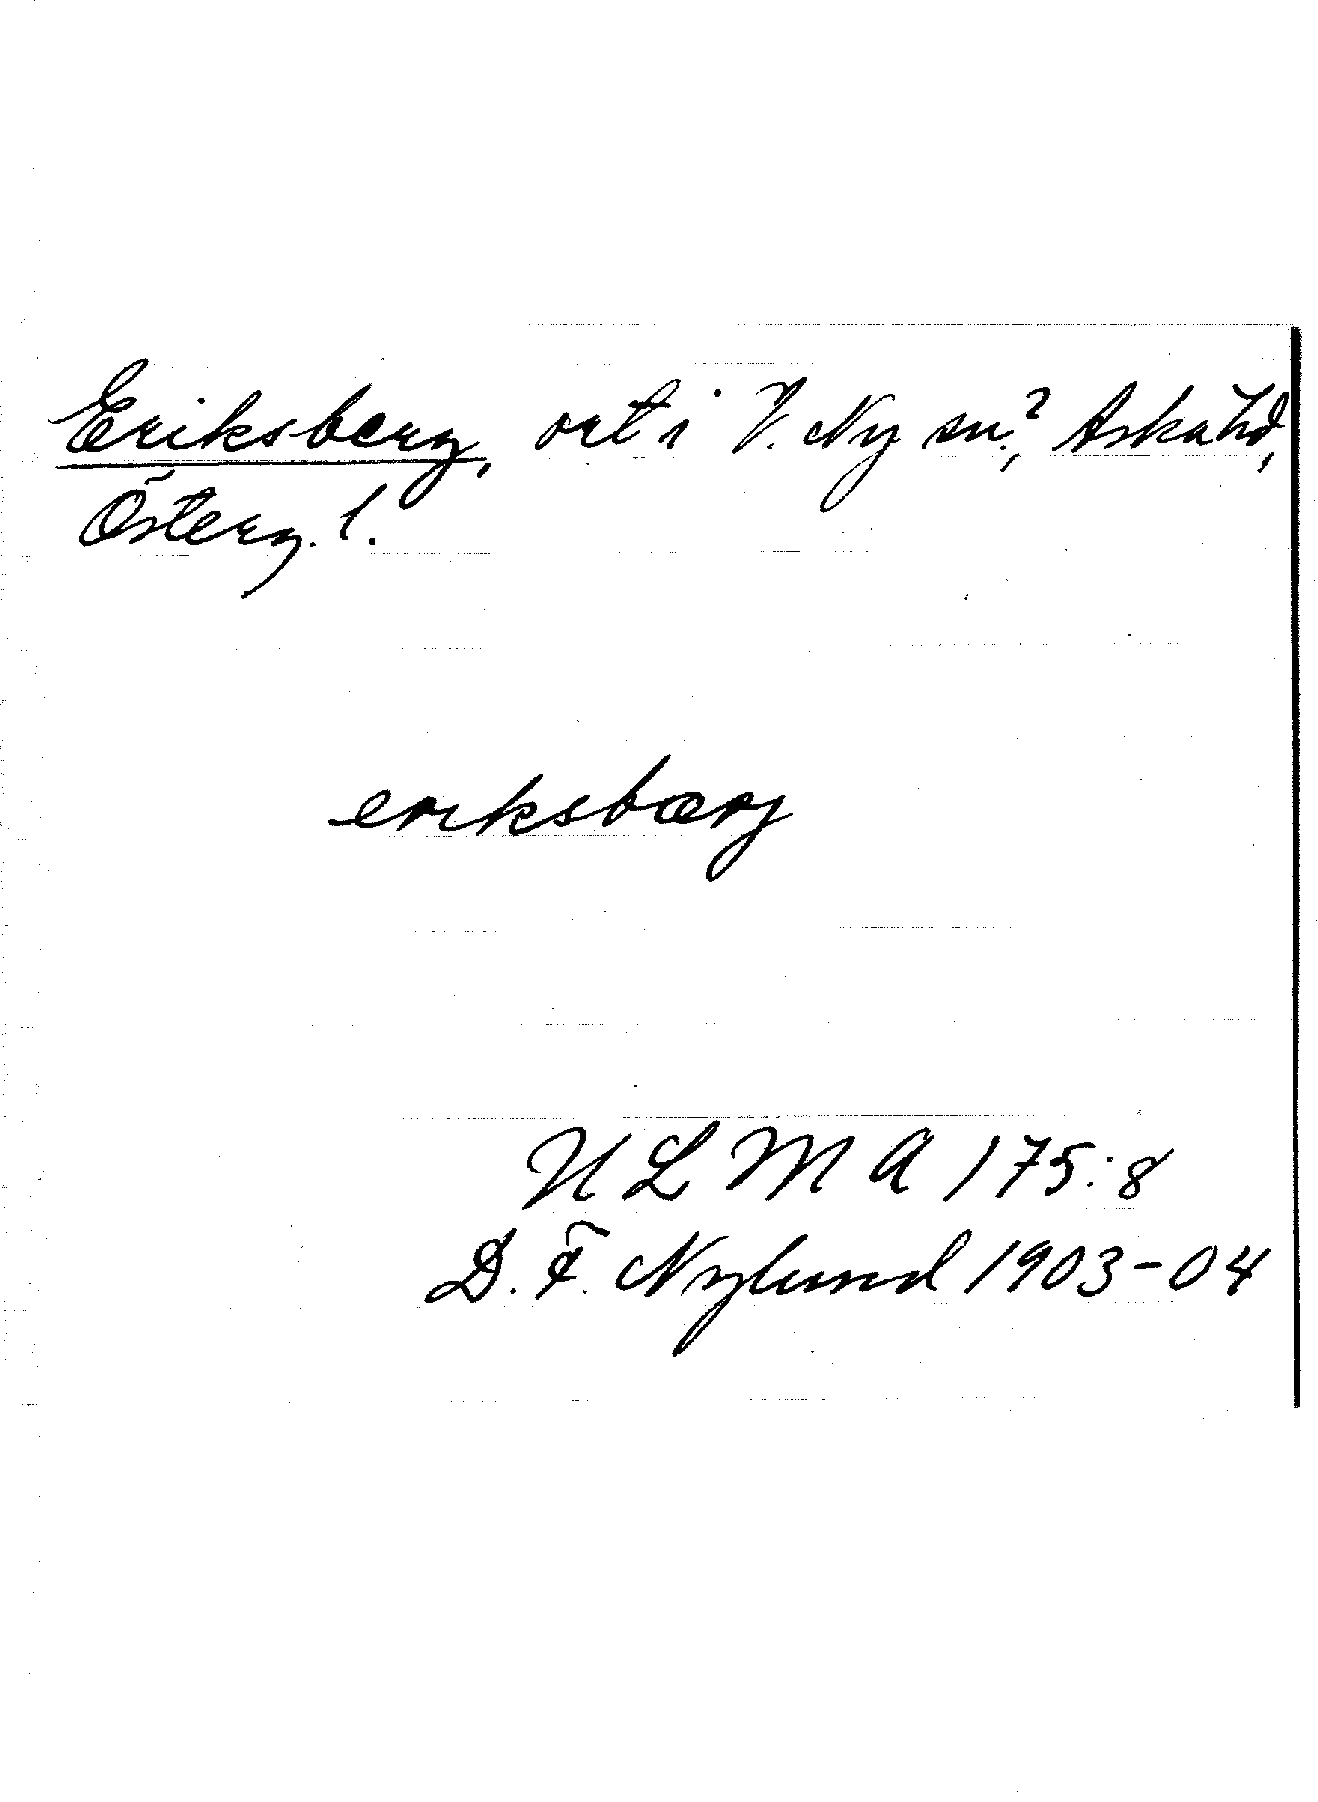 Eriksberg, ort i V. Ny sn.?, Aska hd,
Österg. l.
eriksbærj
ULMA 175:8
D. F. Nylund 1903-04